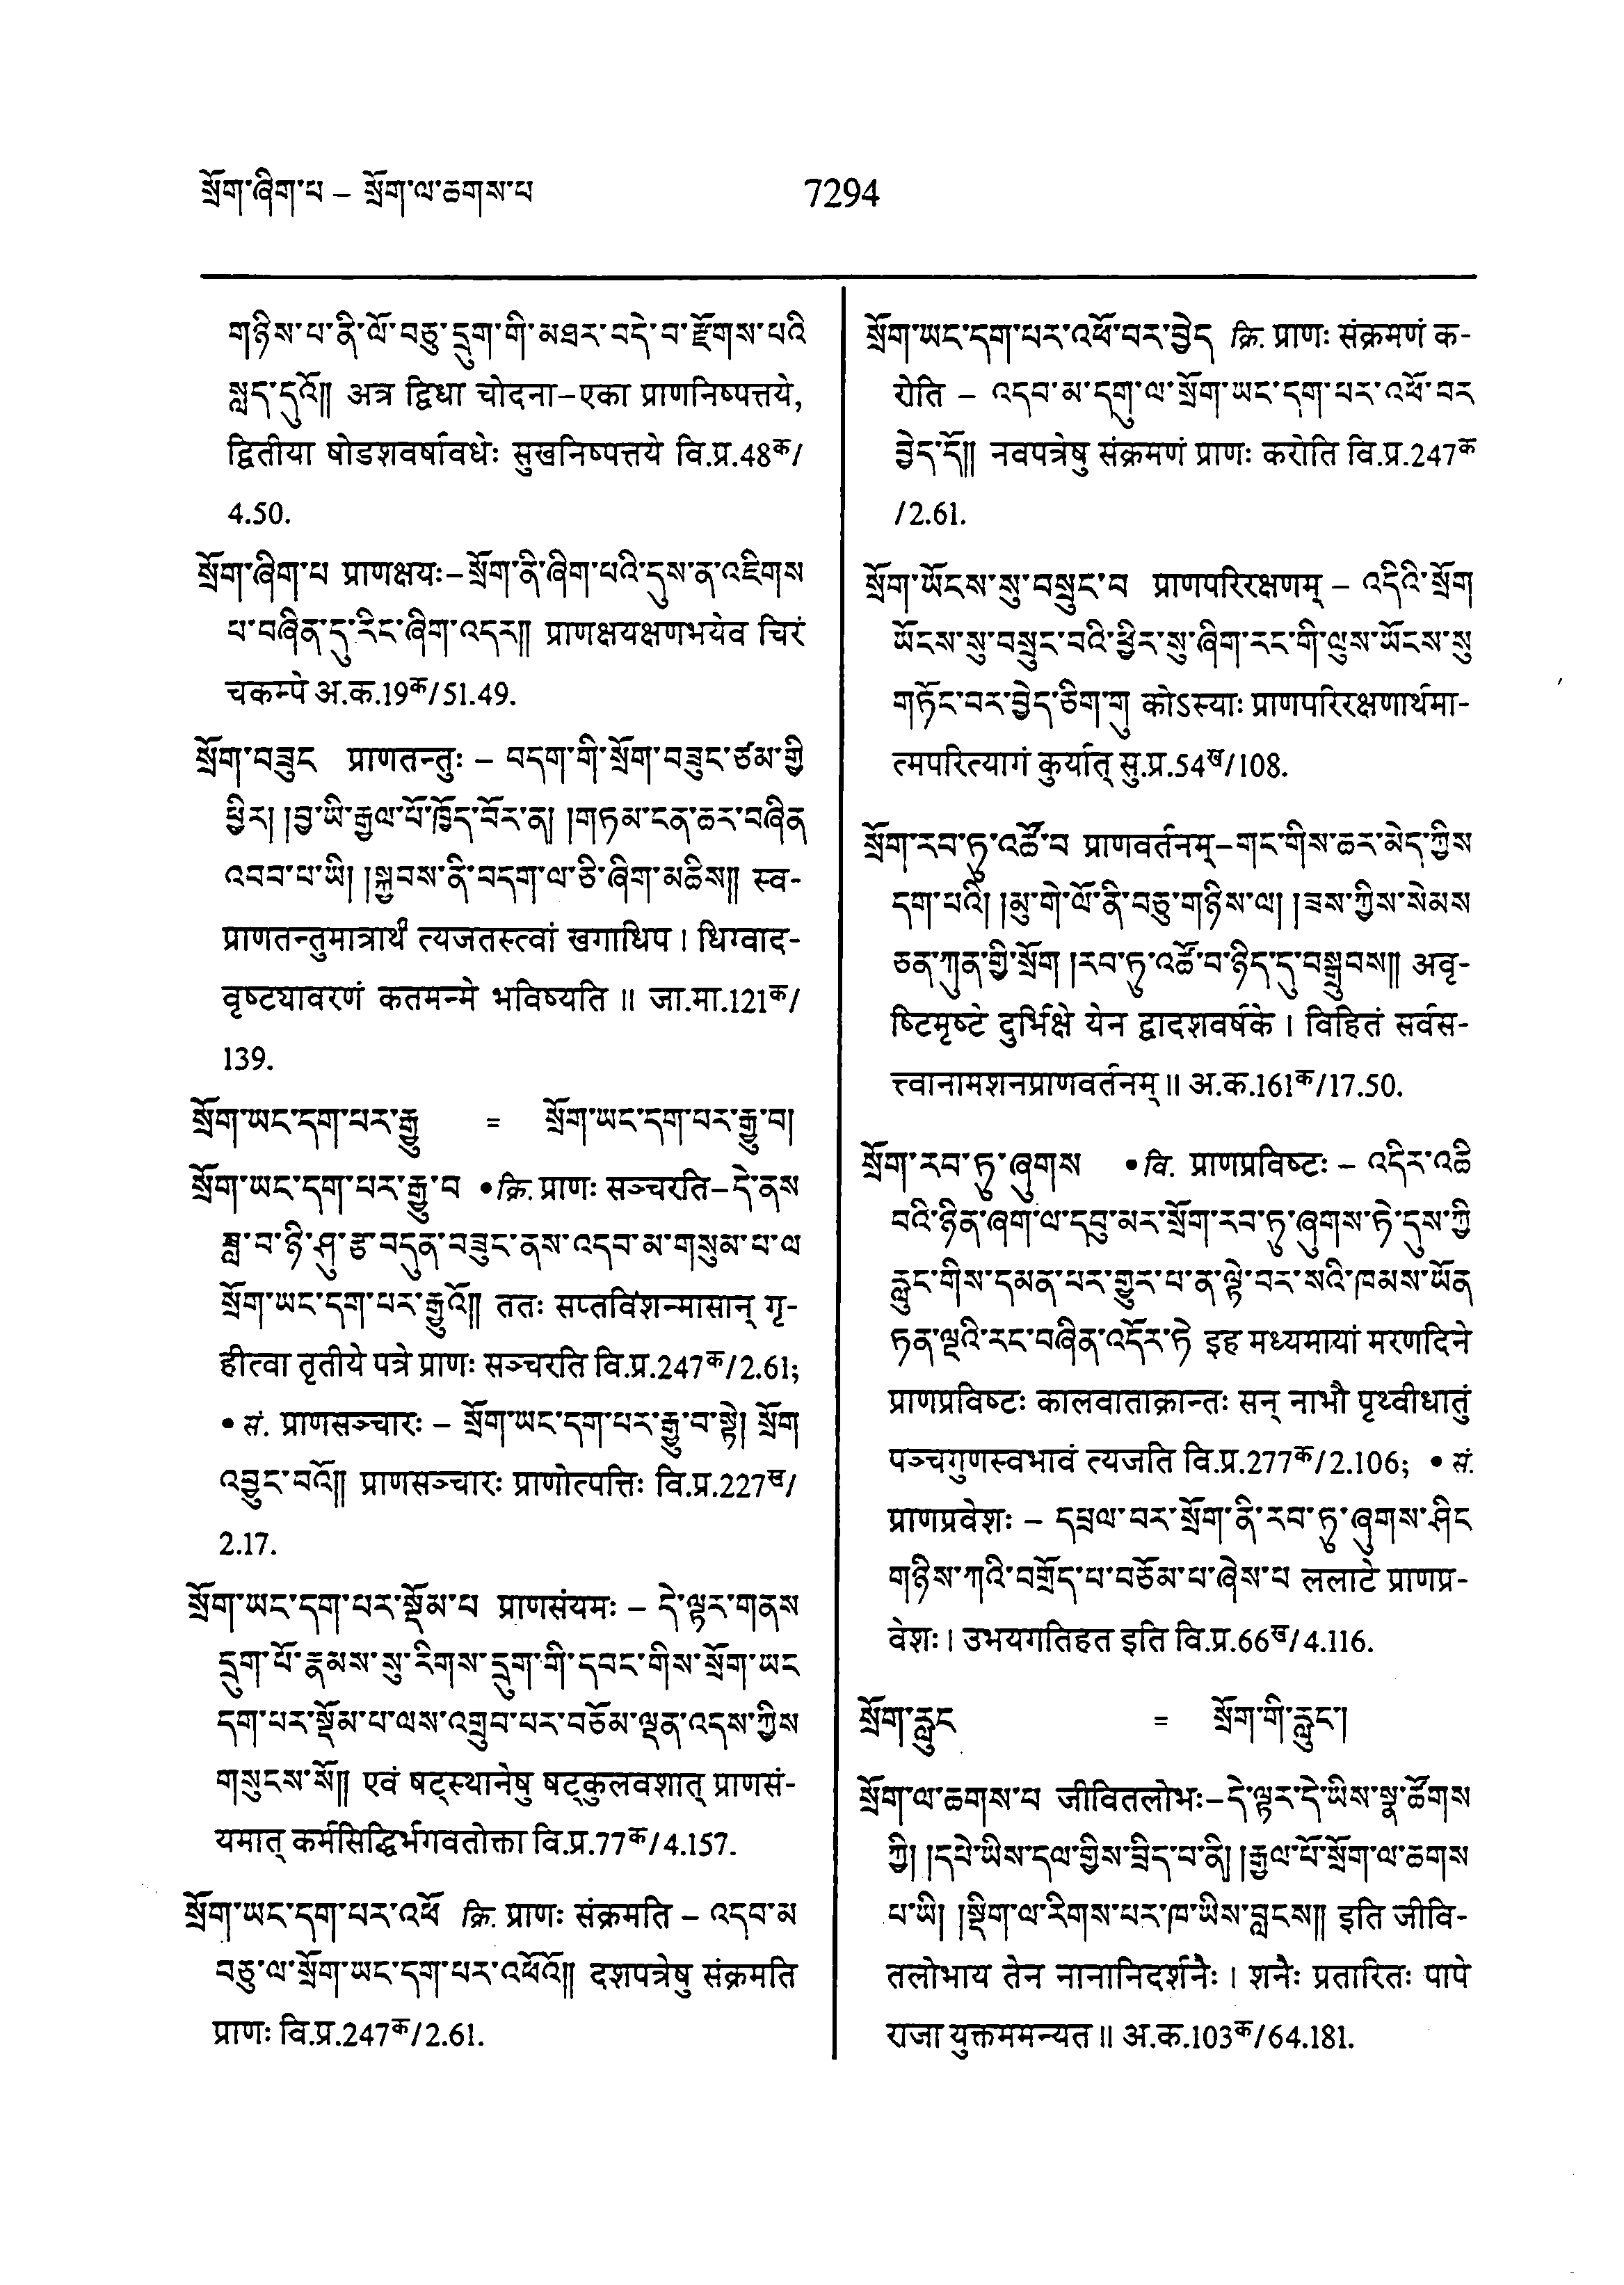 སྲོག་ཞིག་པ – སྲོག་ལ་ཆགས་པ
7294
གཉིས་པ་ནི་ལོ་བཅུ་དྲུག་གི་མཐར་བདེ་བ་རྫོགས་པའི
སླད་དུའོ།། अत्र द्विधा चोदना–एका प्राणनिष्पत्तये,
द्वितीया षोडशवर्षावधेः सुखनिष्पत्तये वि.प्र.48क/
4.50.
སྲོག་ཞིག་པ प्राणक्षयः–སྲོག་ནི་ཞིག་པའི་དུས་ན་འཇིགས
པ་བཞིན་དུ་རིང་ཞིག་འདར།། प्राणक्षयक्षणभयेव चिरं
चकम्पे अ.क.19क/51.49.
སྲོག་བཟུང प्राणतन्तुः – བདག་གི་སྲོག་བཟུང་ཙམ་གྱི
ཕྱིར། །བྱ་ཡི་རྒྱལ་པོ་ཁྱོད་བོར་ན། །གཏམ་ངན་ཆར་བཞིན
འབབ་པ་ཡི། །སྐྱབས་ནི་བདག་ལ་ཅི་ཞིག་མཆིས།། स्व-
प्राणतन्तुमात्रार्थं त्यजतस्त्वां खगाधिप । धिग्वाद-
वृष्ट्यावरणं कतमन्मे भविष्यति ॥ जा.मा.121क/
139.
སྲོག་ཡང་དག་པར་རྒྱུ = སྲོག་ཡང་དག་པར་རྒྱུ་བ།
སྲོག་ཡང་དག་པར་རྒྱུ་བ •क्रि. प्राणः सञ्चरति–དེ་ནས
ཟླ་བ་ཉི་ཤུ་རྩ་བདུན་བཟུང་ནས་འདབ་མ་གསུམ་པ་ལ
སྲོག་ཡང་དག་པར་རྒྱུའོ།། ततः सप्तविंशन्मासान् गृ-
हीत्वा तृतीये पत्रे प्राणः सञ्चरति वि.प्र.247क/2.61;
• सं. प्राणसञ्चारः – སྲོག་ཡང་དག་པར་རྒྱུ་བ་སྟེ། སྲོག
འབྱུང་བའོ།། प्राणसञ्चारः प्राणोत्पत्तिः वि.प्र.227ख/
2.17.
སྲོག་ཡང་དག་པར་སྡོམ་པ प्राणसंयमः – དེ་ལྟར་གནས
དྲུག་པོ་རྣམས་སུ་རིགས་དྲུག་གི་དབང་གིས་སྲོག་ཡང
དག་པར་སྡོམ་པ་ལས་འགྲུབ་པར་བཅོམ་ལྡན་འདས་ཀྱིས
གསུངས་སོ།། एवं षट्स्थानेषु षट्कुलवशात् प्राणसं-
यमात् कर्मसिद्धिर्भगवतोक्ता वि.प्र.77क/4.157.
སྲོག་ཡང་དག་པར་འཕོ क्रि. प्राणः संक्रमति – འདབ་མ
བཅུ་ལ་སྲོག་ཡང་དག་པར་འཕོའོ།། दशपत्रेषु संक्रमति
प्राणः वि.प्र.247क/2.61.
སྲོག་ཡང་དག་པར་འཕོ་བར་བྱེད क्रि. प्राणः संक्रमणं क-
रोति – འདབ་མ་དགུ་ལ་སྲོག་ཡང་དག་པར་འཕོ་བར
བྱེད་དོ།། नवपत्रेषु संक्रमणं प्राणः करोति वि.प्र.247क
/2.61.
སྲོག་ཡོངས་སུ་བསྲུང་བ प्राणपरिरक्षणम् – འདིའི་སྲོག
ཡོངས་སུ་བསྲུང་བའི་ཕྱིར་སུ་ཞིག་རང་གི་ལུས་ཡོངས་སུ
གཏོང་བར་བྱེད་ཅིག་གུ कोऽस्याः प्राणपरिरक्षणार्थमा-
त्मपरित्यागं कुर्यात् सु.प्र.54ख/108.
སྲོག་རབ་ཏུ་འཚོ་བ प्राणवर्तनम्–གང་གིས་ཆར་མེད་ཀྱིས
དག་པའི། །མུ་གེ་ལོ་ནི་བཅུ་གཉིས་ལ། །ཟས་ཀྱིས་སེམས
ཅན་ཀུན་གྱི་སྲོག །རབ་ཏུ་འཚོ་བ་ཉིད་དུ་བསྒྲུབས།། अवृ-
ष्टिमृष्टे दुर्भिक्षे येन द्वादशवर्षके । विहितं सर्वस-
त्त्वानामशनप्राणवर्तनम् ॥ अ.क.161क/17.50.
སྲོག་རབ་ཏུ་ཞུགས •वि. प्राणप्रविष्टः – འདིར་འཆི
བའི་ཉིན་ཞག་ལ་དབུ་མར་སྲོག་རབ་ཏུ་ཞུགས་ཏེ་དུས་ཀྱི
རླུང་གིས་དམན་པར་གྱུར་པ་ན་ལྟེ་བར་སའི་ཁམས་ཡོན
ཏན་ལྔའི་རང་བཞིན་འདོར་ཏེ इह मध्यमायां मरणदिने
प्राणप्रविष्टः कालवाताक्रान्तः सन् नाभौ पृथ्वीधातुं
पञ्चगुणस्वभावं त्यजति वि.प्र.277क/2.106; • सं.
प्राणप्रवेशः – དཔྲལ་བར་སྲོག་ནི་རབ་ཏུ་ཞུགས་ཤིང
གཉིས་ཀའི་བགྲོད་པ་བཅོམ་པ་ཞེས་པ ललाटे प्राणप्र-
वेशः । उभयगतिहत इति वि.प्र.66ख/4.116.
སྲོག་རླུང = སྲོག་གི་རླུང་།
སྲོག་ལ་ཆགས་པ जीवितलोभः–དེ་ལྟར་དེ་ཡིས་སྣ་ཚོགས
ཀྱི། །དཔེ་ཡིས་དལ་གྱིས་བྲིད་པ་ནི། །རྒྱལ་པོ་སྲོག་ལ་ཆགས
པ་ཡི། །སྡིག་ལ་རིགས་པར་ཁ་ཡིས་བླངས།། इति जीवि-
तलोभाय तेन नानानिदर्शनैः । शनैः प्रतारितः पापे
राजा युक्तममन्यत ॥ अ.क.103क/64.181.